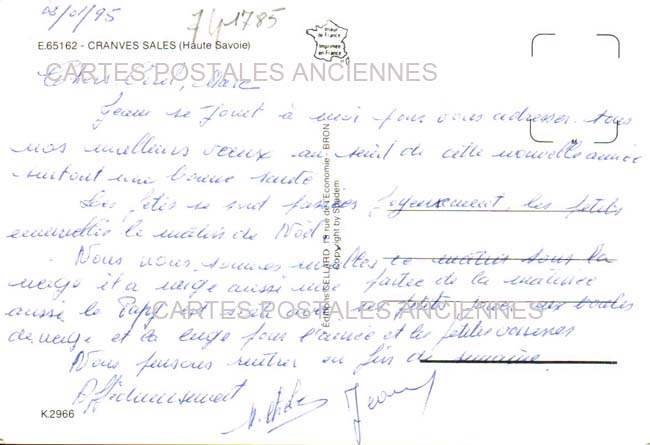 03/01/95
74 1785
E.65162 - CRANVES SALES (Haute Savoie)
Chers
CARTES POSTALES ANCIENNES
Jeanne se joint à moi pour vous adresser tous
nos meilleurs voeux au seuil de cette nouvelle année
surtout une bonne santé
Les fêtes se sont passées joyeusement, les petits
émerveillés le matin de Noël.
Nous nous sommes ce matin sous la
neige il a neigé aussi une partie de la matinée
aussi le Papy les boules
CARTES POSTALES ANCIENNES
de neige et la luge pour l'année et les petites
Nous pensons rentrer en fin de semaine
Affectueusement
Jeanne
K.2966
Editions CELLARD 13 rue de l'Economie - BRON
Copyright by Spadem
Imprimée
en France